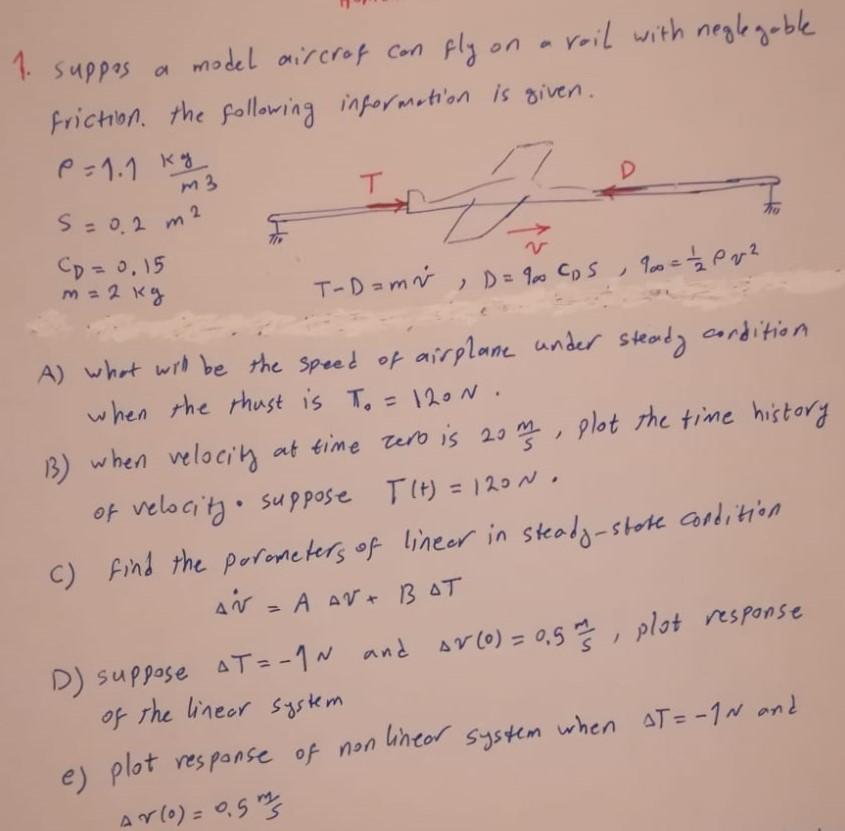 1. suppos a model aircraf can fly on a rail with neglegable
friction. the following information is given.
ρ = 1.1 kg/m3
S = 0.2 m2
CD = 0.15
m = 2 kg
T
D
v
T-D = m v̇ , D = q∞ CD S , q∞ = 1/2 ρ v2
A) what will be the speed of airplane under steady condition
when the thust is To = 120 N .
B) when velocity at time zero is 20 m/s , plot the time history
of velocity. suppose T(t) = 120 N .
C) find the parameters of linear in steady-state condition
Δv̇ = A Δv + B ΔT
D) suppose ΔT = -1 N and Δv(0) = 0.5 m/s , plot response
of the linear system
e) plot response of non linear system when ΔT = -1 N and
Δv(0) = 0.5 m/s